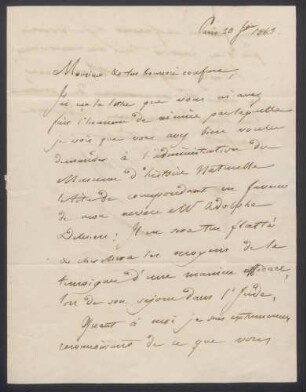 Paris 20 Jer 1843
Monsieur et très honoré confrère,
J'ai reçu la lettre que vous m'avez
fait l'honneur de m'écrire par laquelle
je vois que vous avez bien voulu
demander à l'administration du
Museum d'histoire Naturelle
le titre de correspondant en faveur
de mon neveu Mr Adolphe
Il sera très flatté
les moyens de la
témoigner d'une manière efficace,
lors de son séjour dans l'Inde,
Quant à moi je suis extrêmement
reconnaissant de ce que vous